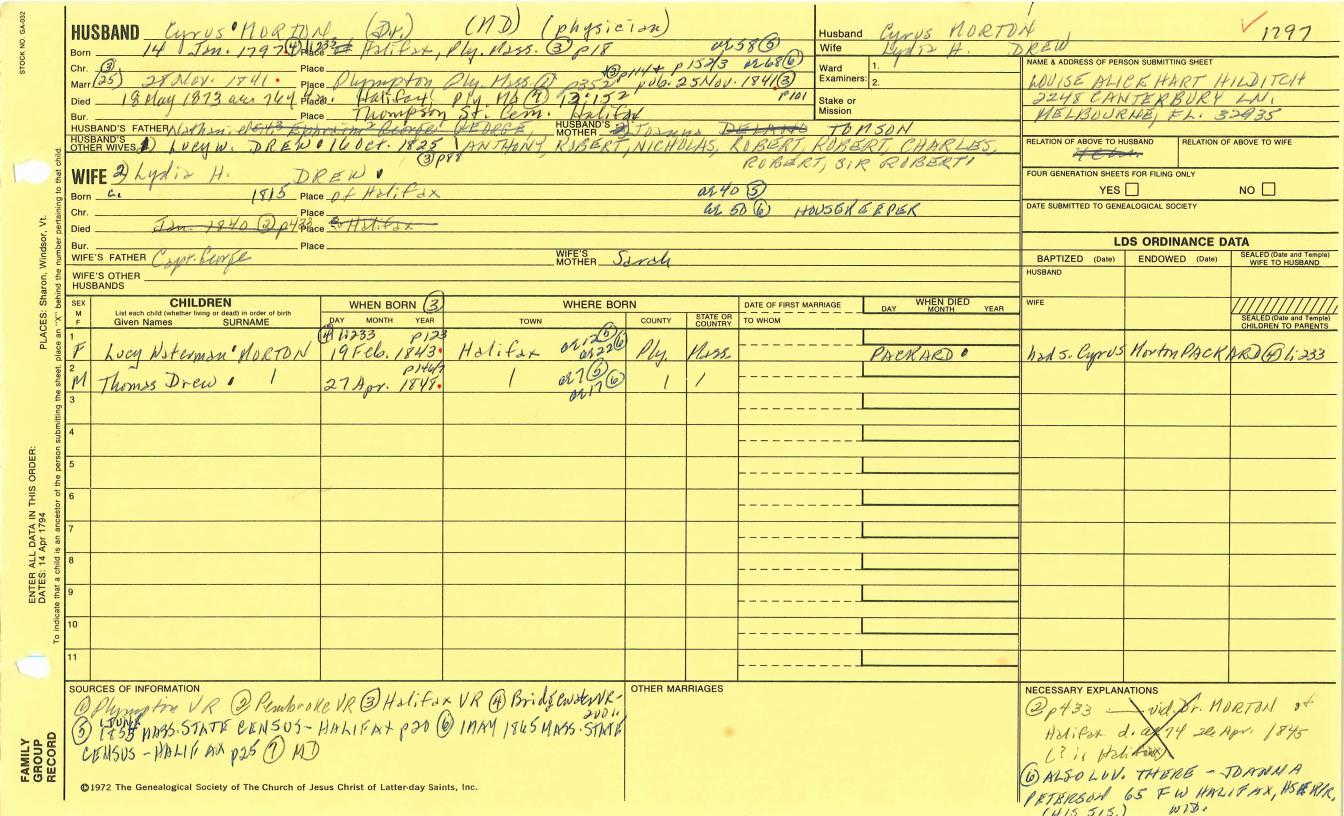 STOCK NO. GA-032
HUSBAND Cyrus MORTON (Dr.) (MD) (physician)
Born 14 Jan. 1797 (4) Li233 Place Halifax, Ply. Mass. (3) p18 ae 58 (5)
Chr. (3) Place p152/3 ae 68 (6)
Marr. (25) 28 Nov. 1841 Place Plympton Ply. Mass. (1) p352 pub. 25 Nov. 1841 (3) p101
Died 18 May 1873 ae. 76 Place Halifax, Ply. Ma (7)
Bur. Place Thompson St. Cem. Halifax
HUSBAND'S FATHER Nathaniel Ephraim George GEORGE, HUSBAND'S MOTHER Joanna DELANO TOMSON
HUSBAND'S OTHER WIVES 1) Lucy W. DREW 16 Oct. 1825 ANTHONY, ROBERT, NICHOLAS, ROBERT, ROBERT, CHARLES,
(3) p88 ROBERT, SIR ROBERT
WIFE 2) Lydia H. DREW
Born c. 1815 Place of Halifax ae 40 (5)
Chr. Place ae 50 (6) HOUSEKEEPER
Died Jan. 1840 (2) p433 Place Halifax
Bur. Place
WIFE'S FATHER Capt. George WIFE'S MOTHER Sarah
WIFE'S OTHER HUSBANDS
Husband Cyrus MORTON 1797
Wife Lydia H. DREW
Ward Examiners: 1.
2.
Stake or Mission
NAME & ADDRESS OF PERSON SUBMITTING SHEET
LOUISE ALICE HART HILDITCH
2248 CANTERBURY LN.
MELBOURNE, FL. 32935
RELATION OF ABOVE TO HUSBAND RELATION OF ABOVE TO WIFE
FOUR GENERATION SHEETS FOR FILING ONLY
YES NO
DATE SUBMITTED TO GENEALOGICAL SOCIETY
LDS ORDINANCE DATA
BAPTIZED (Date) ENDOWED (Date) SEALED (Date and Temple) WIFE TO HUSBAND
HUSBAND
WIFE
SEALED (Date and Temple) CHILDREN TO PARENTS
SEX M F CHILDREN List each child (whether living or dead) in order of birth Given Names SURNAME
WHEN BORN (3) DAY MONTH YEAR
WHERE BORN TOWN COUNTY STATE OR COUNTRY
DATE OF FIRST MARRIAGE TO WHOM
WHEN DIED DAY MONTH YEAR
1 F Lucy Waterman MORTON (4) Li233 p123 19 Feb. 1843 Halifax ae 12 (5) ae 22 (6) Ply. Mass. PACKARD had s. Cyrus Morton PACKARD (4) Li:233
2 M Thomas Drew p146/7 27 Apr. 1848 ae 7 (5) ae 17 (6)
3
4
5
6
7
8
9
10
11
SOURCES OF INFORMATION
(1) Plympton VR (2) Pembroke VR (3) Halifax VR (4) Bridgewater VR-
(5) 1 JUNE 1855 MASS. STATE CENSUS - HALIFAX p20 (6) 1 MAY 1865 MASS. STATE
CENSUS - HALIFAX p25 (7) MD
©1972 The Genealogical Society of The Church of Jesus Christ of Latter-day Saints, Inc.
OTHER MARRIAGES
NECESSARY EXPLANATIONS
(2) p433 Dr. MORTON of
Halifax d. ae 74 26 Apr. 1845
(? is Halifax)
(6) ALSO LIV. THERE - JOANNA
PETERSON 65 F W HALIFAX, HSEKPR,
(HIS SIS.) WID.
FAMILY GROUP RECORD
ENTER ALL DATA IN THIS ORDER:
DATES: 14 Apr 1794
PLACES: Sharon, Windsor, Vt.
To indicate that a child is an ancestor of the person submitting the sheet, place an "X" behind the number pertaining to that child.